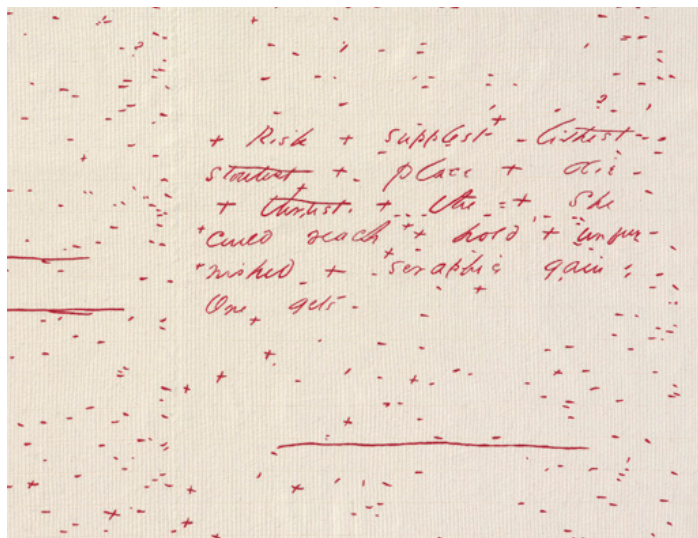 + Risk + supplest - lithest -
stoutest + place + die -
+ thrust. + the = + She
could reach + hold + unfur-
nished + seraphic gain;
One gets -